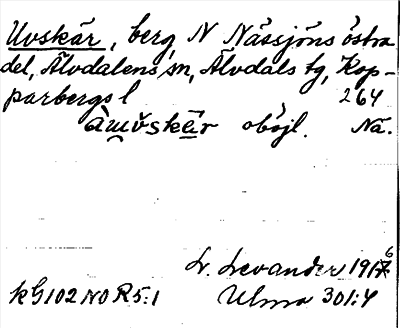 Uvskär, berg N Nässjöns östra
del, Älvdalens sn, Älvdals tg, Kop-
parbergs l 264
obojl. Nä.
L. Levander 1916
kG102 NO R5:1 Ulma 301:4